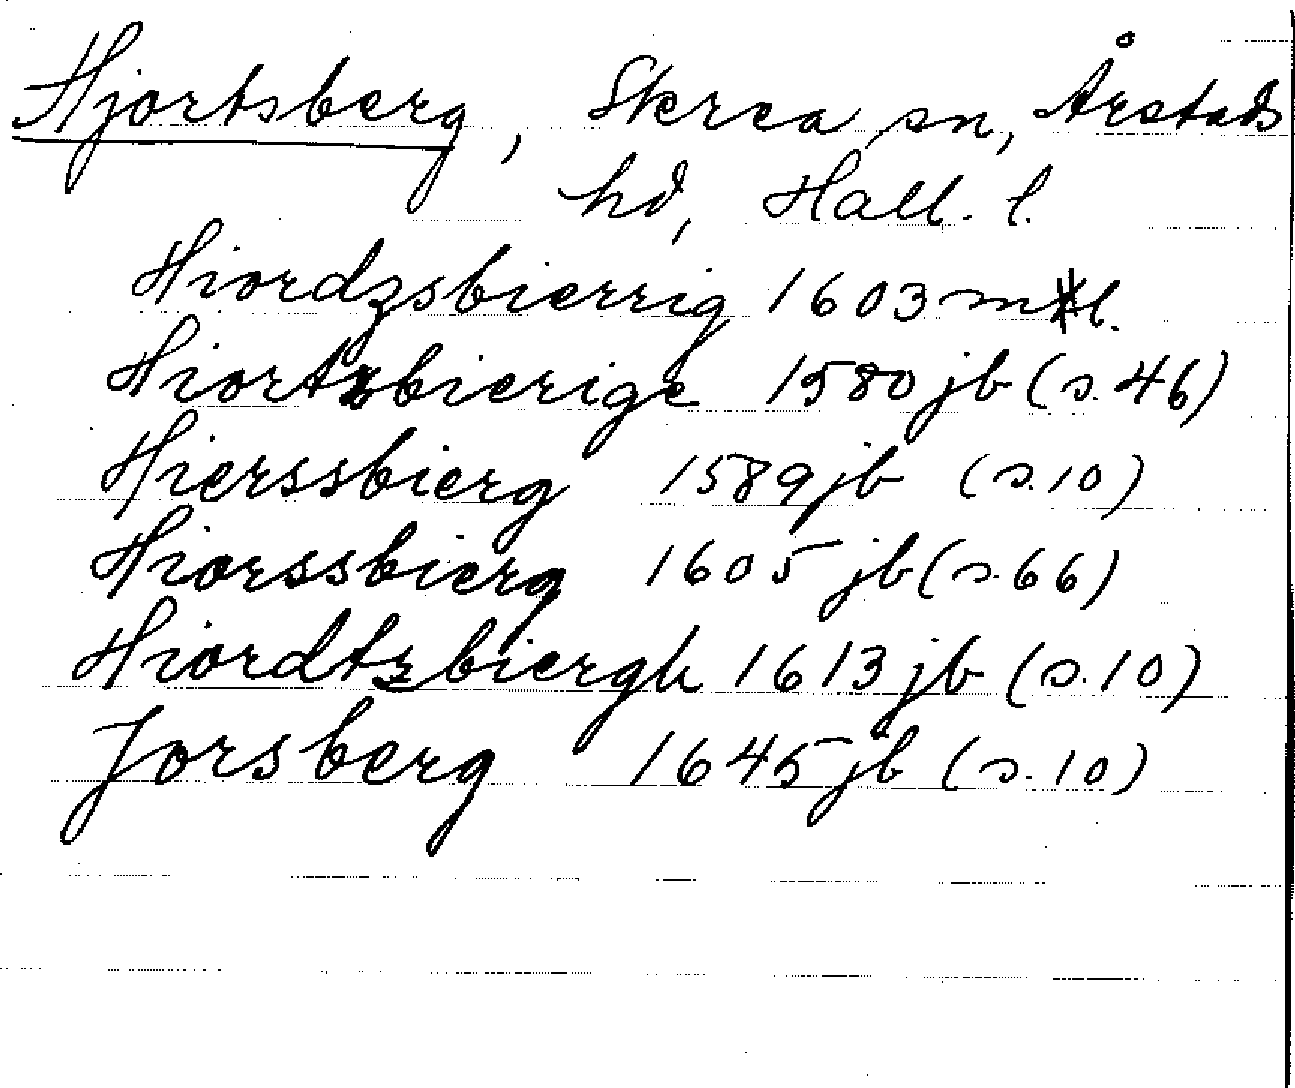 Hjortsberg, Skrea sn, Årstads
hd, Hall. l.
Hiordzsbierrig 1603 mtl.
Hiortzbierige 1580 jb (s. 46)
Hierssbierg 1589 jb (s. 10)
Hiorssbierg 1605 jb (s. 66)
Hiordtzbiergh 1613 jb (s. 10)
Jorsberg 1645 jb (s. 10)